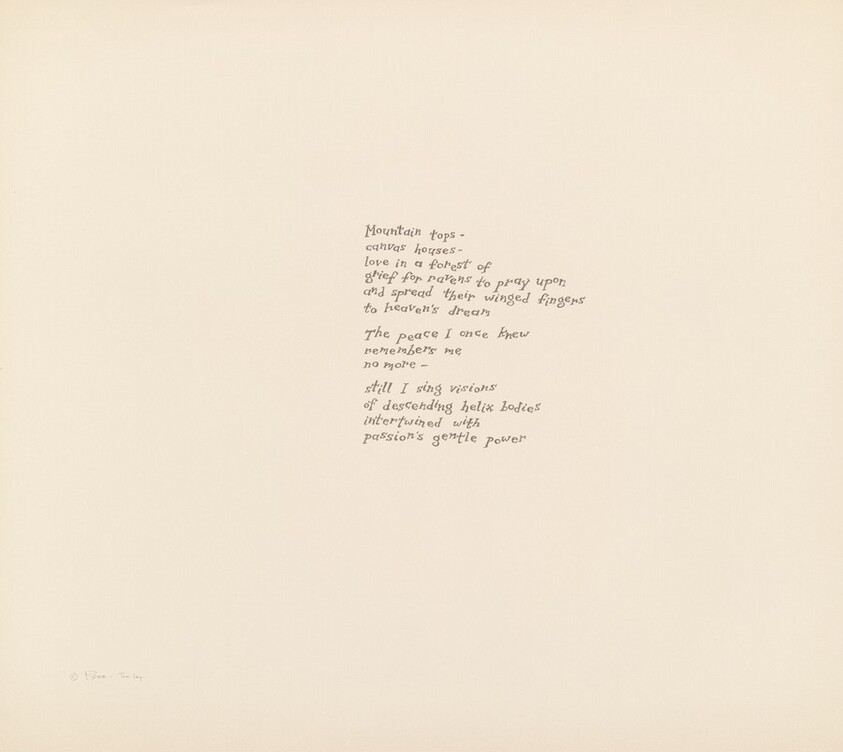 Mountain tops -
canvas houses -
love in a forest of
grief for ravens to pray upon
and spread their winged fingers
to heaven's dream
The peace I once knew
remembers me
no more -
still I sing visions
of descending helix bodies
intertwined with
passion's gentle power
©